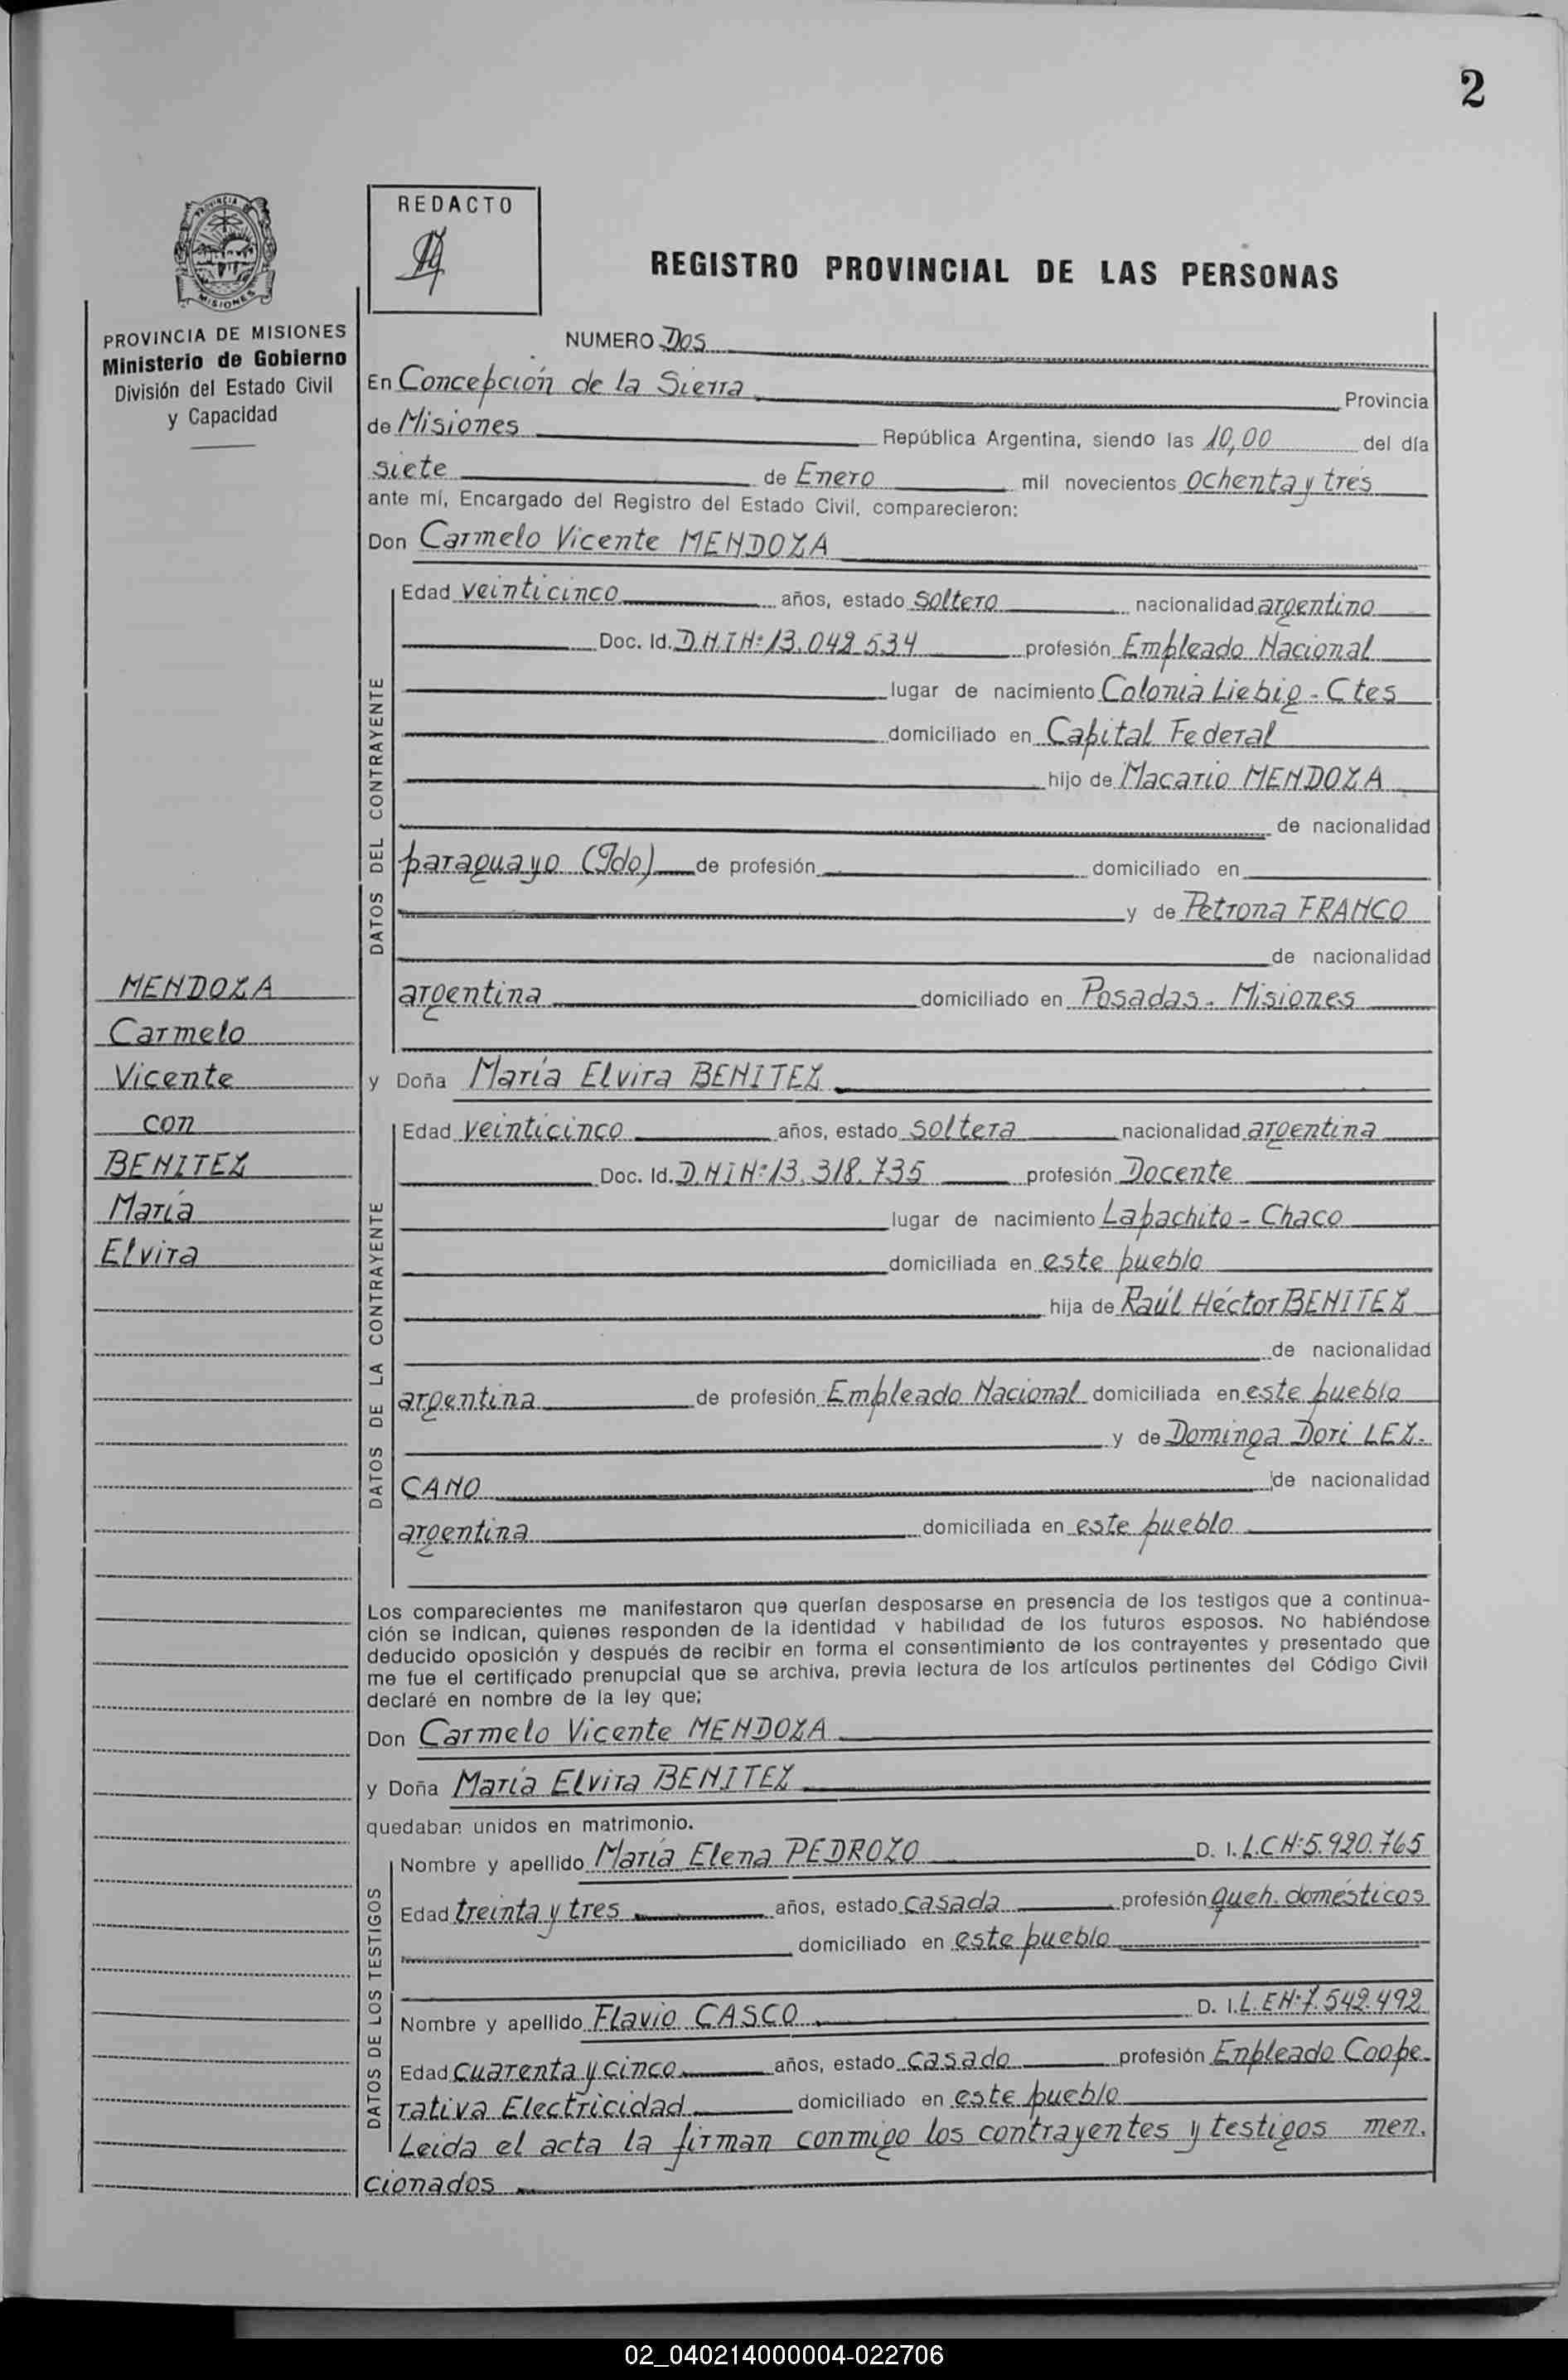 2
REDACTO
REGISTRO PROVINCIAL DE LAS PERSONAS
PROVINCIA DE MISIONES
Ministerio de Gobierno
División del Estado Civil
y Capacidad
NUMERO Dos
En Concepción de la Sierra Provincia
de Misiones República Argentina, siendo las 10,00 del día
siete de Enero mil novecientos ochenta y tres
ante mí, Encargado del Registro del Estado Civil, comparecieron:
Don Carmelo Vicente MENDOZA
DATOS DEL CONTRAYENTE
Edad veinticinco años, estado soltero nacionalidad argentino
Doc. Id. D.N.I Nº 13.042.534 profesión Empleado Nacional
lugar de nacimiento Colonia Liebig - Ctes
domiciliado en Capital Federal
hijo de Macario MENDOZA
de nacionalidad
paraguayo (Fdo) de profesión domiciliado en
y de Petrona FRANCO
de nacionalidad
argentina domiciliado en Posadas - Misiones
MENDOZA
Carmelo
Vicente
con
BENITEZ
María
Elvira
y Doña María Elvira BENITEZ
DATOS DE LA CONTRAYENTE
Edad veinticinco años, estado soltera nacionalidad argentina
Doc. Id. D.N.I Nº 13.318.735 profesión Docente
lugar de nacimiento Lapachito - Chaco
domiciliada en este pueblo
hija de Raúl Héctor BENITEZ
de nacionalidad
argentina de profesión Empleado Nacional domiciliada en este pueblo
y de Dominga Dori LEZ-
CANO de nacionalidad
argentina domiciliada en este pueblo
Los comparecientes me manifestaron que querían desposarse en presencia de los testigos que a continua-
ción se indican, quienes responden de la identidad y habilidad de los futuros esposos. No habiéndose
deducido oposición y después de recibir en forma el consentimiento de los contrayentes y presentado que
me fue el certificado prenupcial que se archiva, previa lectura de los artículos pertinentes del Código Civil
declaré en nombre de la ley que;
Don Carmelo Vicente MENDOZA
y Doña María Elvira BENITEZ
quedaban unidos en matrimonio.
DATOS DE LOS TESTIGOS
Nombre y apellido María Elena PEDROZO D. I. L.C Nº 5.920.765
Edad treinta y tres años, estado casada profesión queh. domésticos
domiciliado en este pueblo
Nombre y apellido Flavio CASCO D. I. L.E Nº 7.542.492
Edad cuarenta y cinco años, estado casado profesión Enpleado Coope-
rativa Electricidad domiciliado en este pueblo
Leida el acta la firman conmigo los contrayentes y testigos men-
cionados
02_040214000004-022706